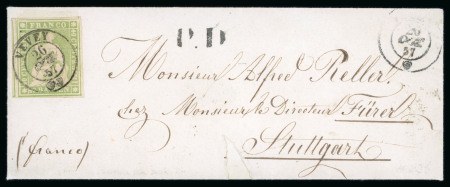 FRANCO
VEVEY
57
P.D
57
Monsieur Alfred Keller
chez Monsieur le Directeur Fürer
Stuttgart
(franco)